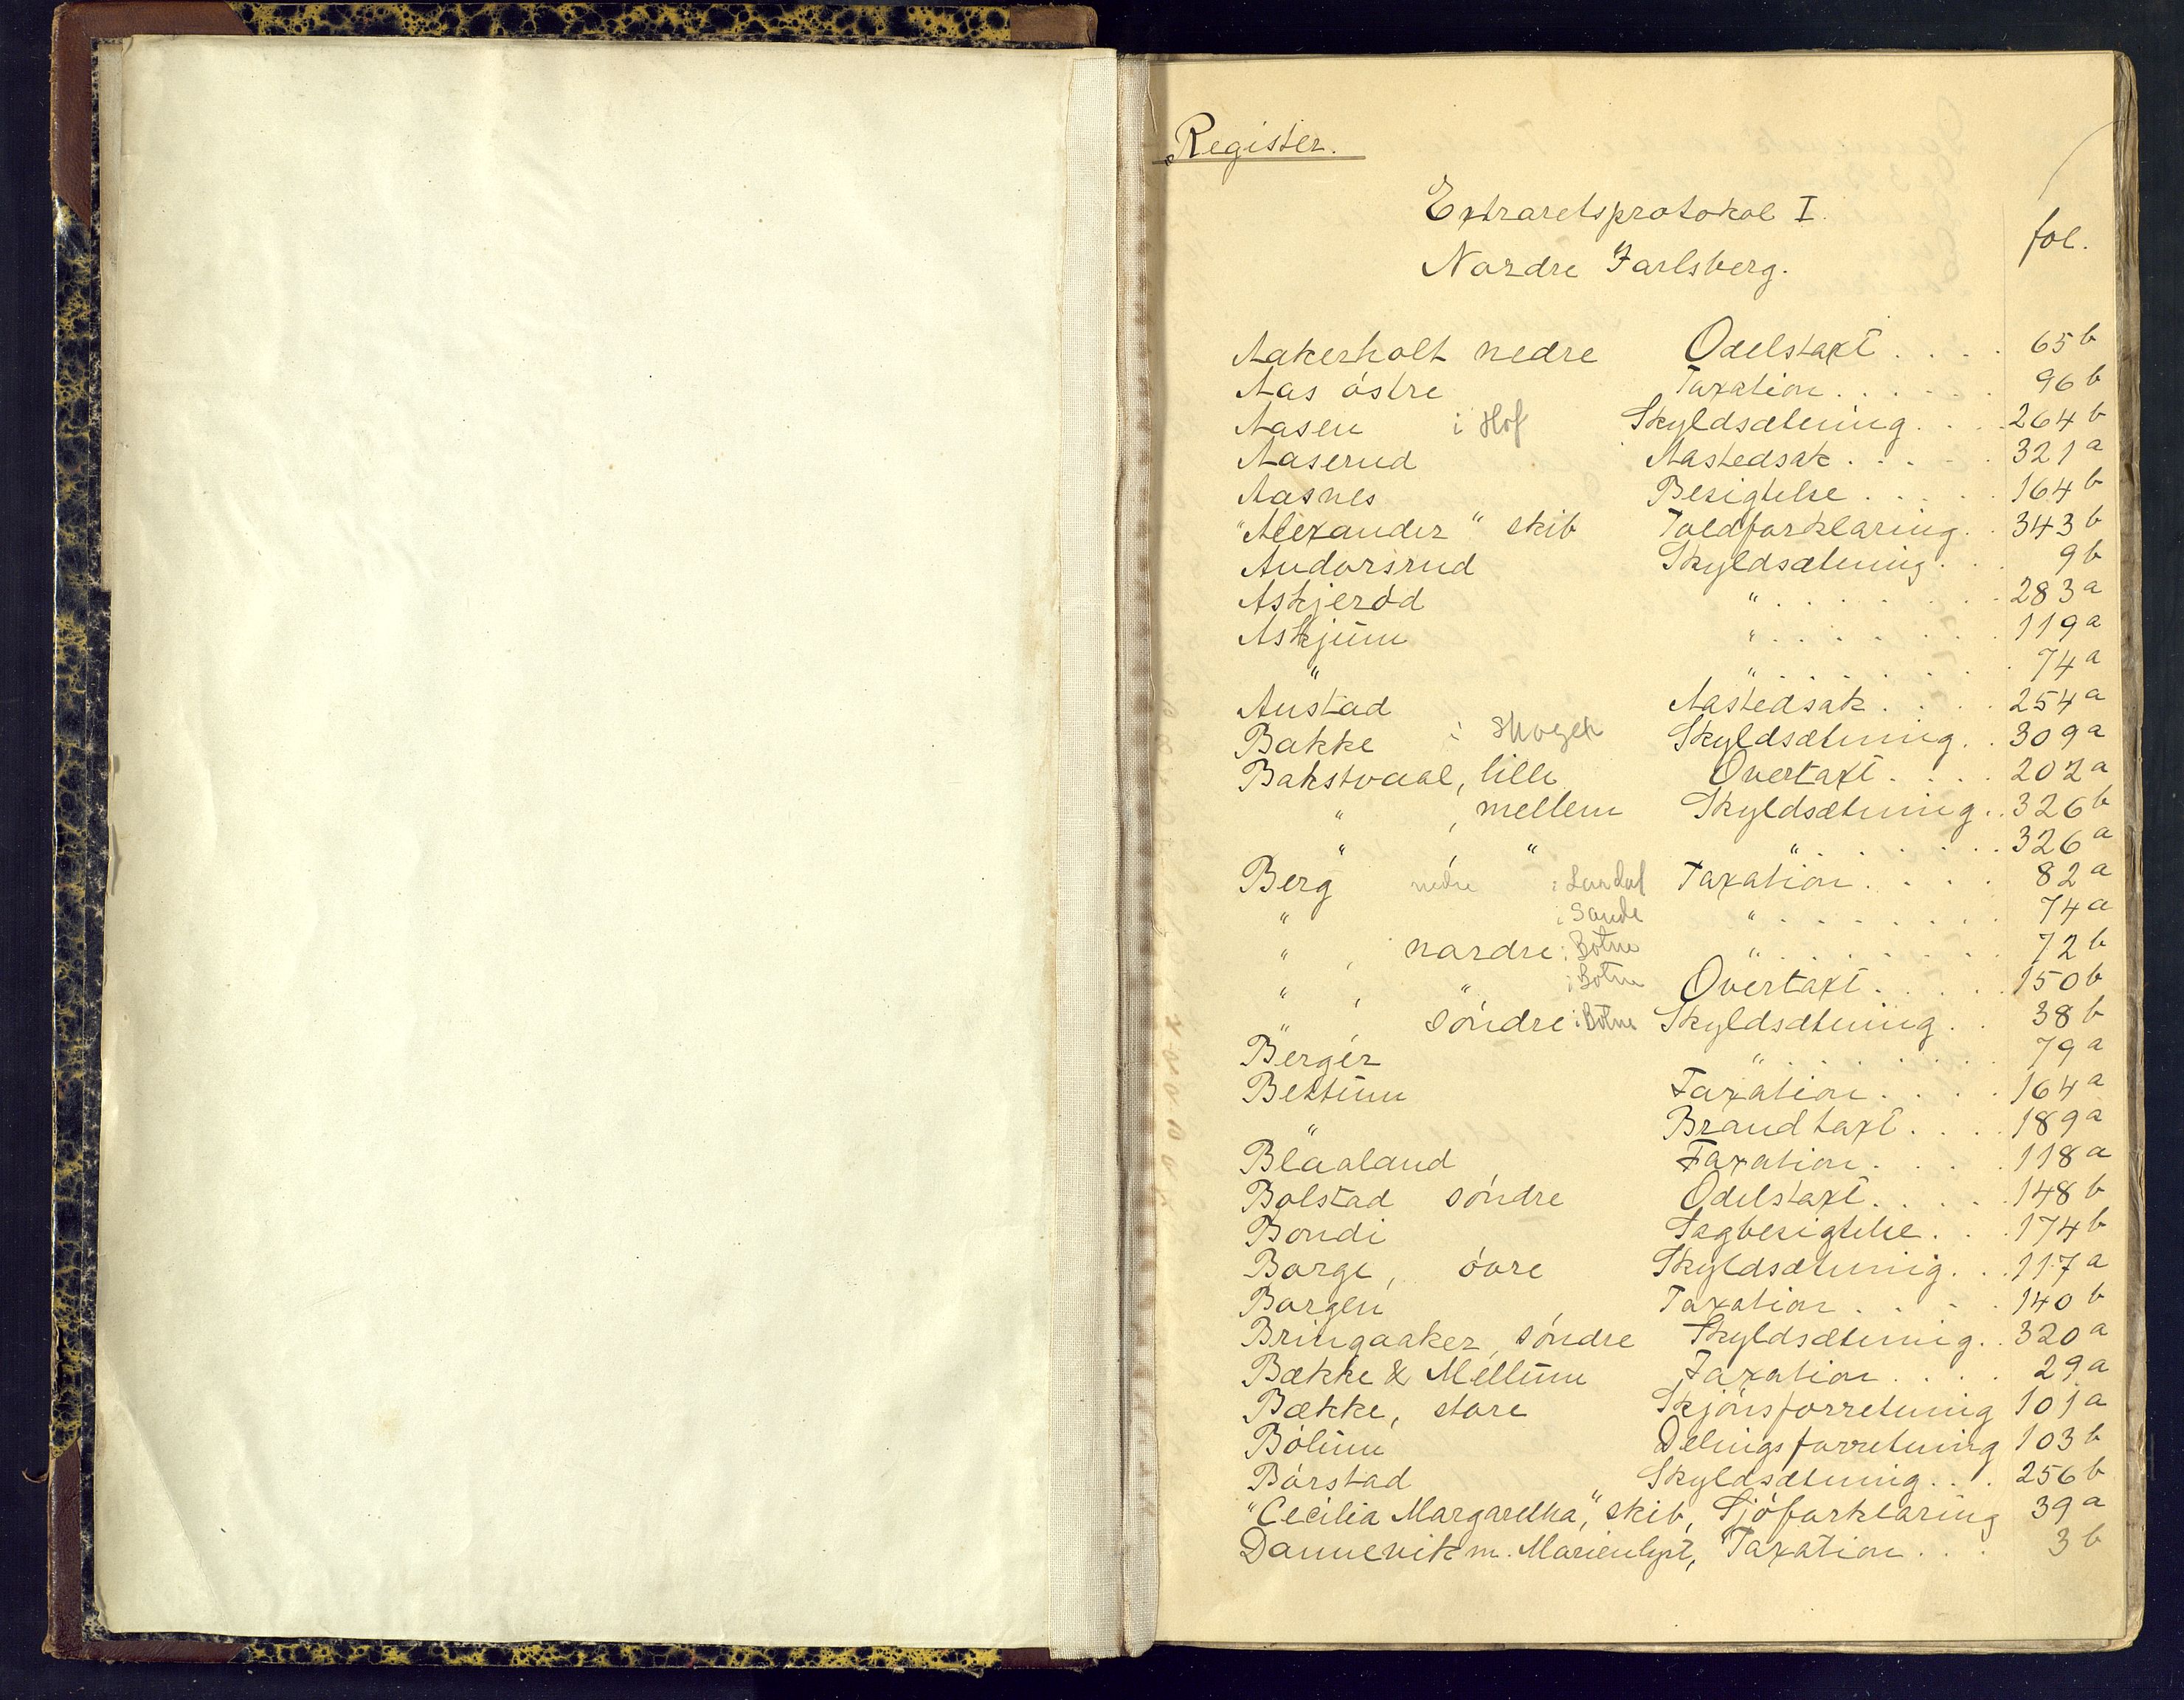 Register.
Extraretsprotokol I.
Nordre Jarlsberg.
fol.
Aakerholt nedre Odelstaxt . . . . 65 b
Aas östre Taxation . . . . . . 96 b
Aasen i Hof Skyldsætning . . . 264 b
Aaserud Aastedsak . . . . . 321 a
Aasnes Besigtelse . . . . . 164 b
"Alexander" skib Toldforklaring . . 343 b
Andorsrud Skyldsætning . . . 9 b
Askjeröd " . . . . . . . . 283 a
Askjum " . . . . . . . . 119 a
" " . . . . . . . . 74 a
Austad Aastedsak . . . . 254 a
Bakke i Skoger Skyldsætning . . 309 a
Bakstvaal, lille Overtaxt . . . . 202 a
" , mellem Skyldsætning . . 326 b
" " " . . . . . . . 326 a
Berg nedre i Laurdal Taxation . . . . 82 a
" i Sande " . . . . . . . . 74 a
" , nordre i Botne " . . . . . . . . 72 b
" , " i Botne Overtaxt . . . . . 150 b
" , söndre i Botne Skyldsætning . . 38 b
Berger " . . . . . . . . 79 a
Bettum Taxation . . . . . 164 a
" Brandtaxt . . . . 189 a
Blaaland Taxation . . . . . 118 a
Bolstad söndre Odelstaxt . . . . . 148 b
Bondi Sagbesigtelse . . . 174 b
Borge, övre Skyldsætning . . . 117 a
Borgen Taxation . . . . . 140 b
Bringaaker, söndre Skyldsætning . . 320 a
Bække & Mellum Taxation . . . . 29 a
Bække, store Skjönsforretning 101 a
Bölum Delingsforretning 103 b
Börstad Skyldsætning . . . 256 b
"Cecilia Margaretha," skib, Sjöforklaring 39 a
Dannevik m. Marienlyst, Taxation . . . 3 b